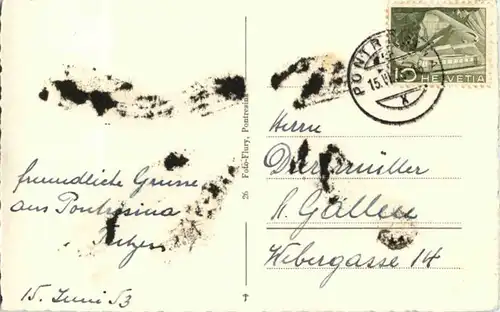 freundliche Grüsse
aus Pontresina
15. Juni 53
26 Foto-Flury, Pontresina
Herrn
St. Gallen
Webergasse 14
PONTR
15.VI
10 HELVETIA